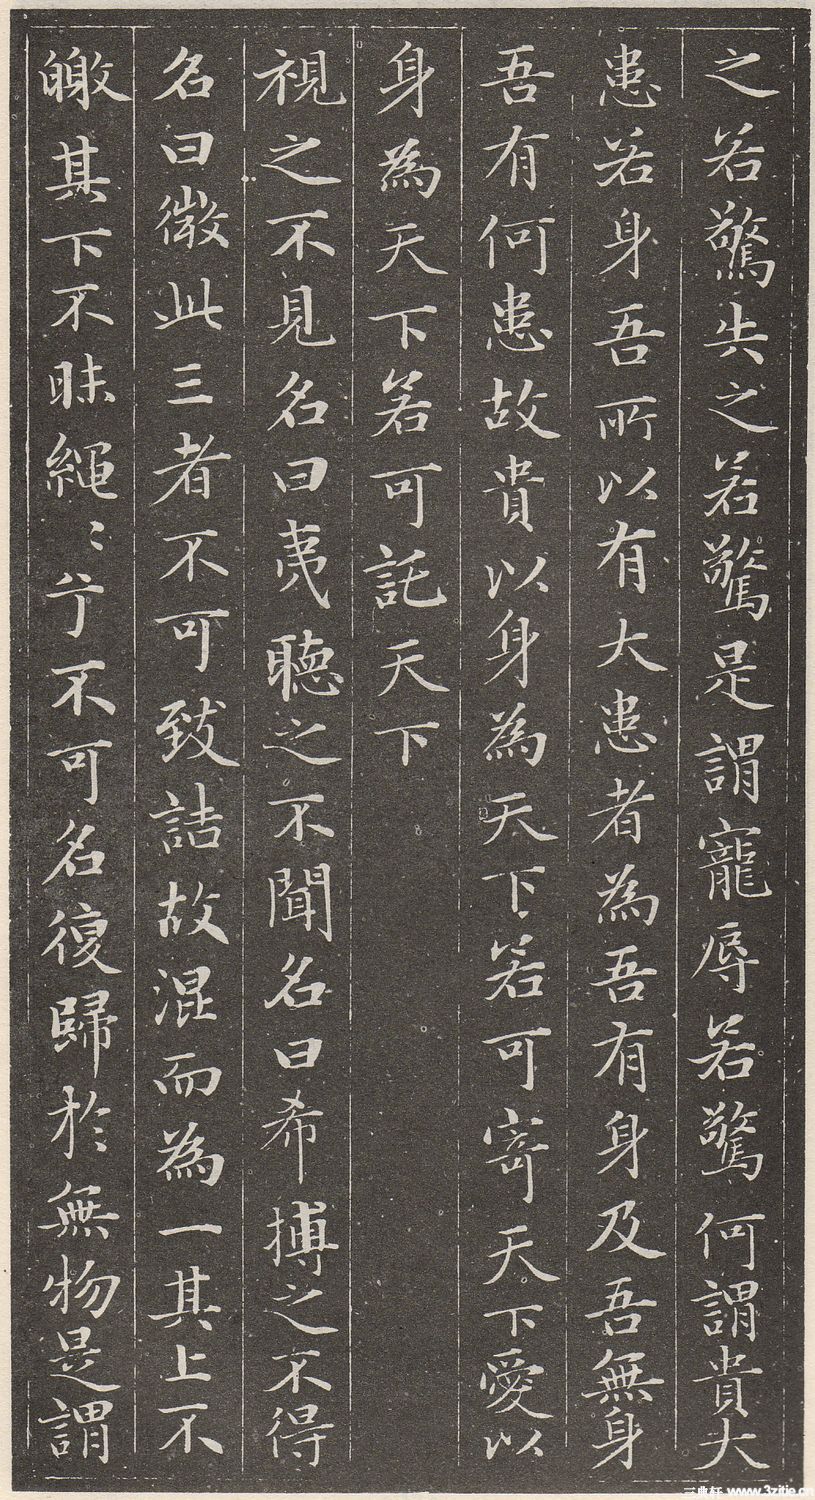 之若驚失之若驚是謂寵辱若驚何謂貴大
患若身吾所以有大患者為吾有身及吾無身
吾有何患故貴以身為天下若可寄天下愛以
身為天下若可託天下
視之不見名曰夷聽之不聞名曰希搏之不得
名曰微此三者不可致詰故混而為一其上不
皦其下不昧繩〻兮不可名復歸於無物是謂
三典轩 www.3zitie.cn